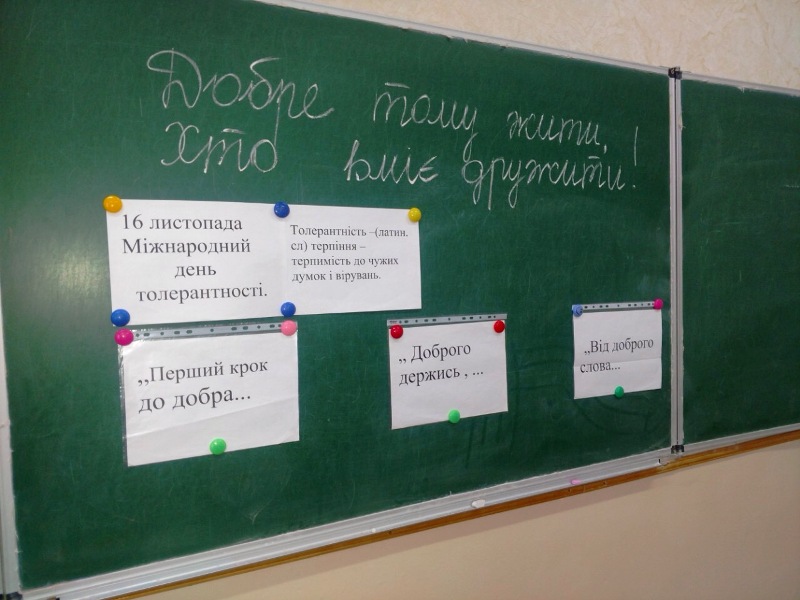 Добре тому жити,
Хто вміє дружити!
16 листопада
Міжнародний
день
толерантності.
Толерантність –(латин.
сл) терпіння –
терпимість до чужих
думок і вірувань.
,,Перший крок
до добра...
,, Доброго
держись , ...
,,Від доброго
слова...